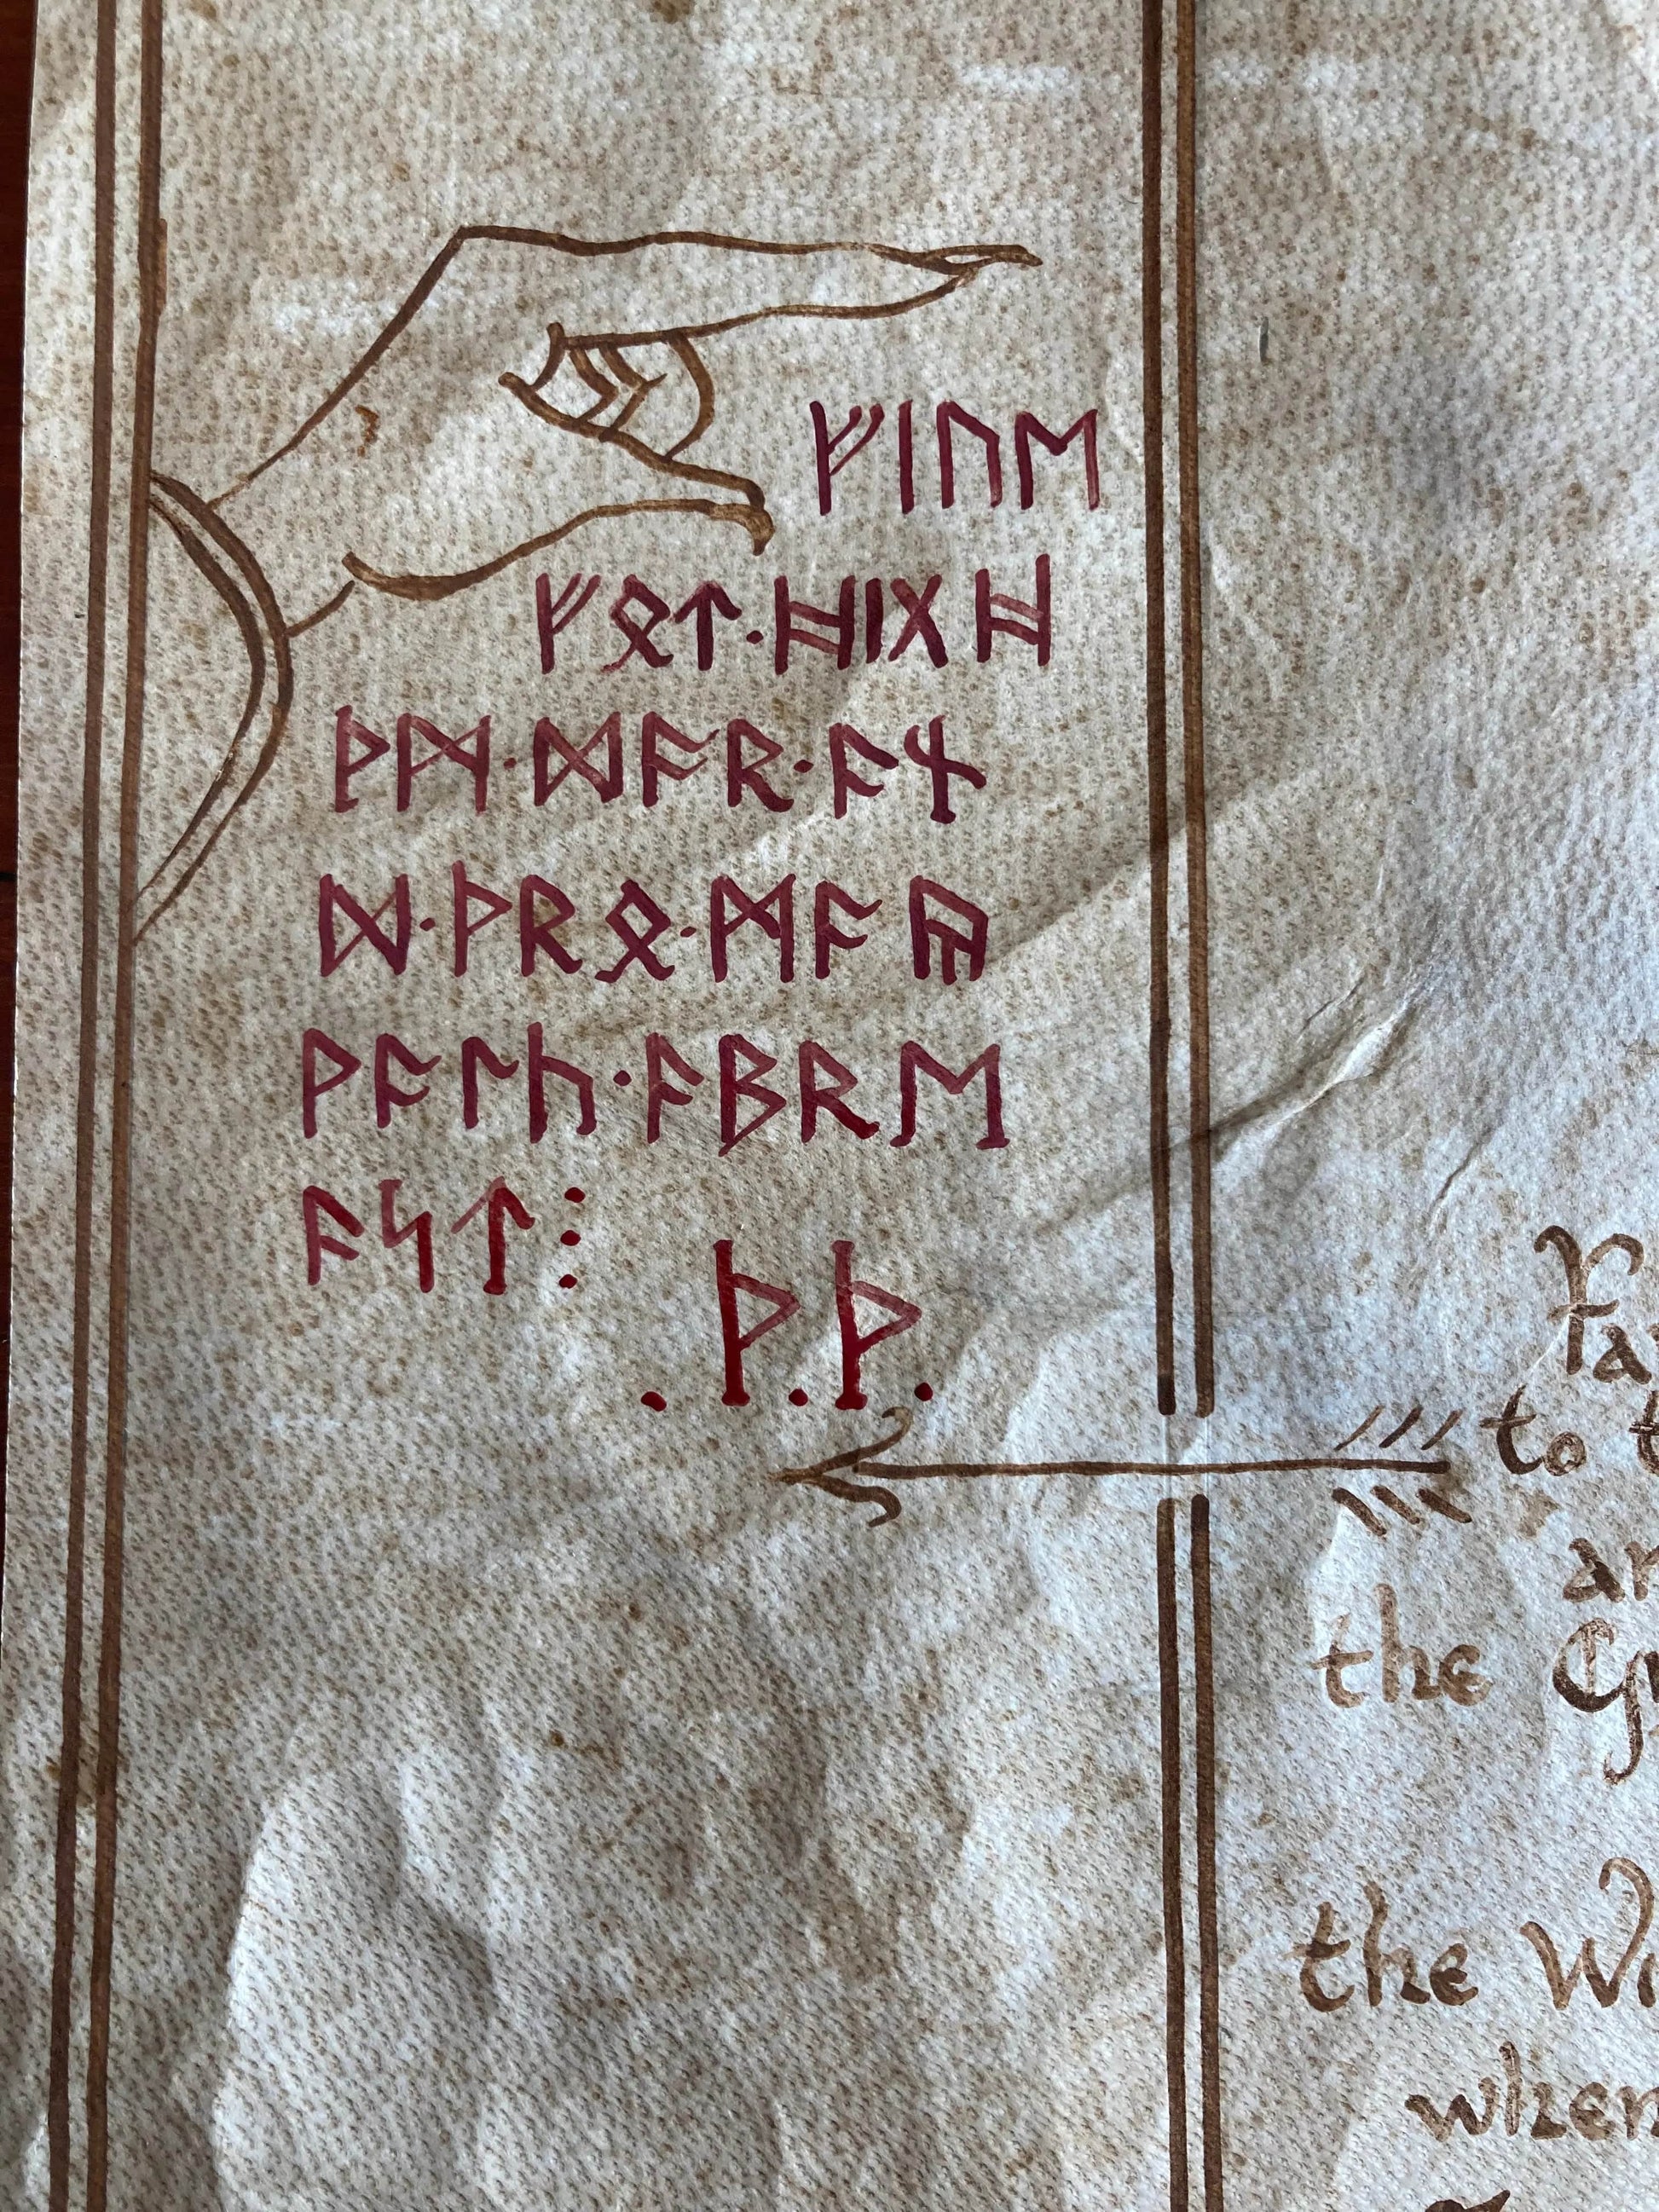 ᚠᛁᚢᛖ
ᚠᛟᛏ᛫ᚻᛁᚷᚻ
ᚦᛗ᛫ᛞᚨᚱ᛫ᚨᚾ
ᛞ᛫ᚦᚱᛟ᛫ᛗᚨᚣ
ᚹᚨᛚᚳ᛫ᚨᛒᚱᛖ
ᚨᛋᛏ⁝
.ᚦ.ᚦ.
Far
to t
ar
the
the Wi
when